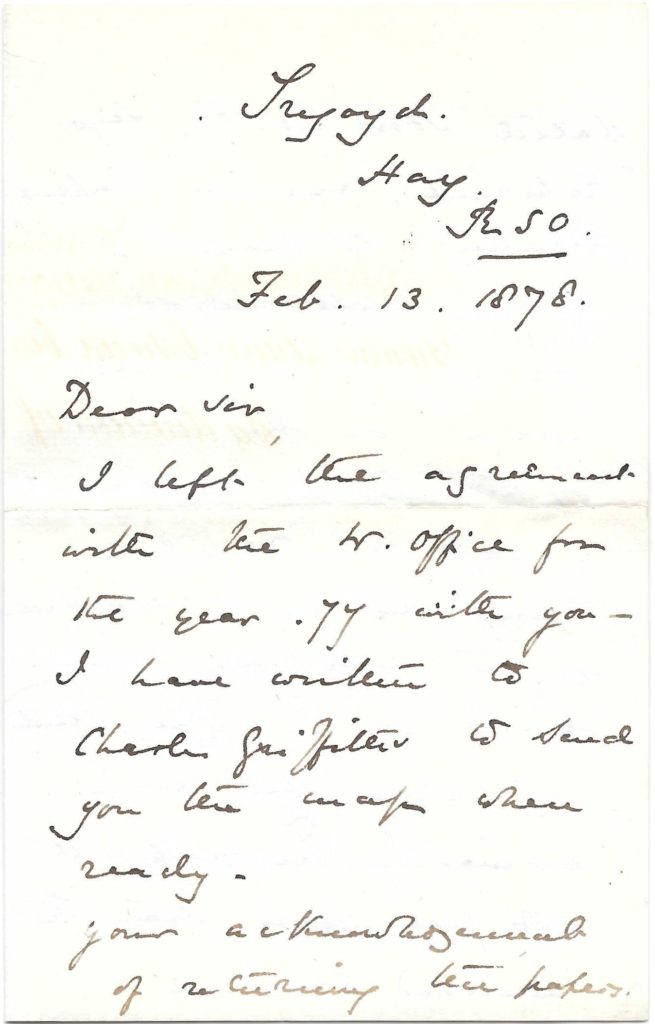 Tregoyd.
Hay.
R S O.
Feb. 13. 1878.
Dear Sir,
I left the agreement
with the W. Office for
the year .77 with you —
I have written to
Charles Griffiths to send
you the map when
ready -
your acknowledgement
of returning the papers.